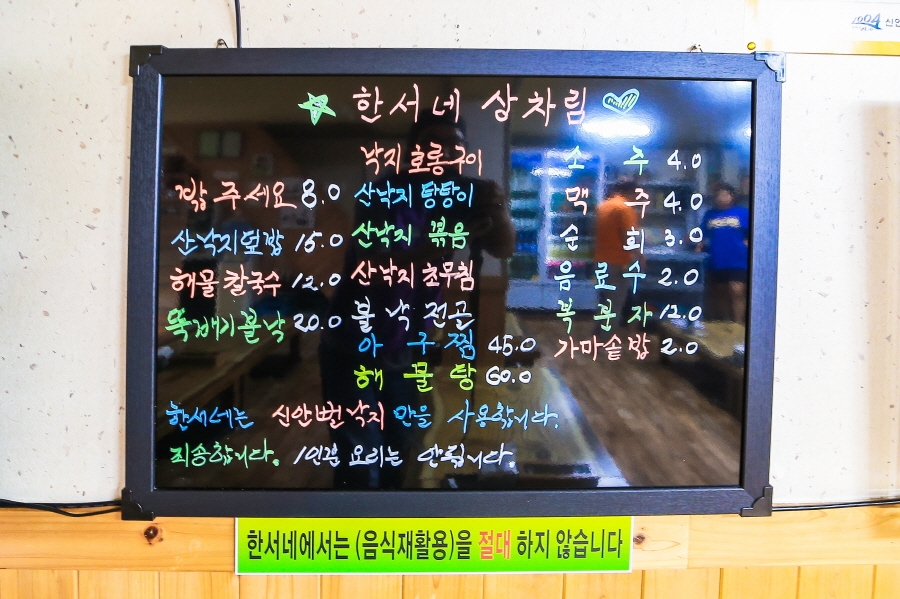 1004 신안
☆ 한서네 상차림 ♡
밥 주세요 8.0
산낙지덮밥 15.0
해물칼국수 12.0
뚝배기불낙 20.0
낙지호롱구이
산낙지 탕탕이
산낙지 볶음
산낙지 초무침
불낙전골
아구찜 45.0
해물탕 60.0
소주 4.0
맥주 4.0
순희 3.0
음료수 2.0
복분자 12.0
가마솥밥 2.0
한서네는 신안뻘낙지 만을 사용합니다.
죄송합니다. 1인분 요리는 안됩니다
한서네에서는 (음식재활용)을 절대 하지 않습니다